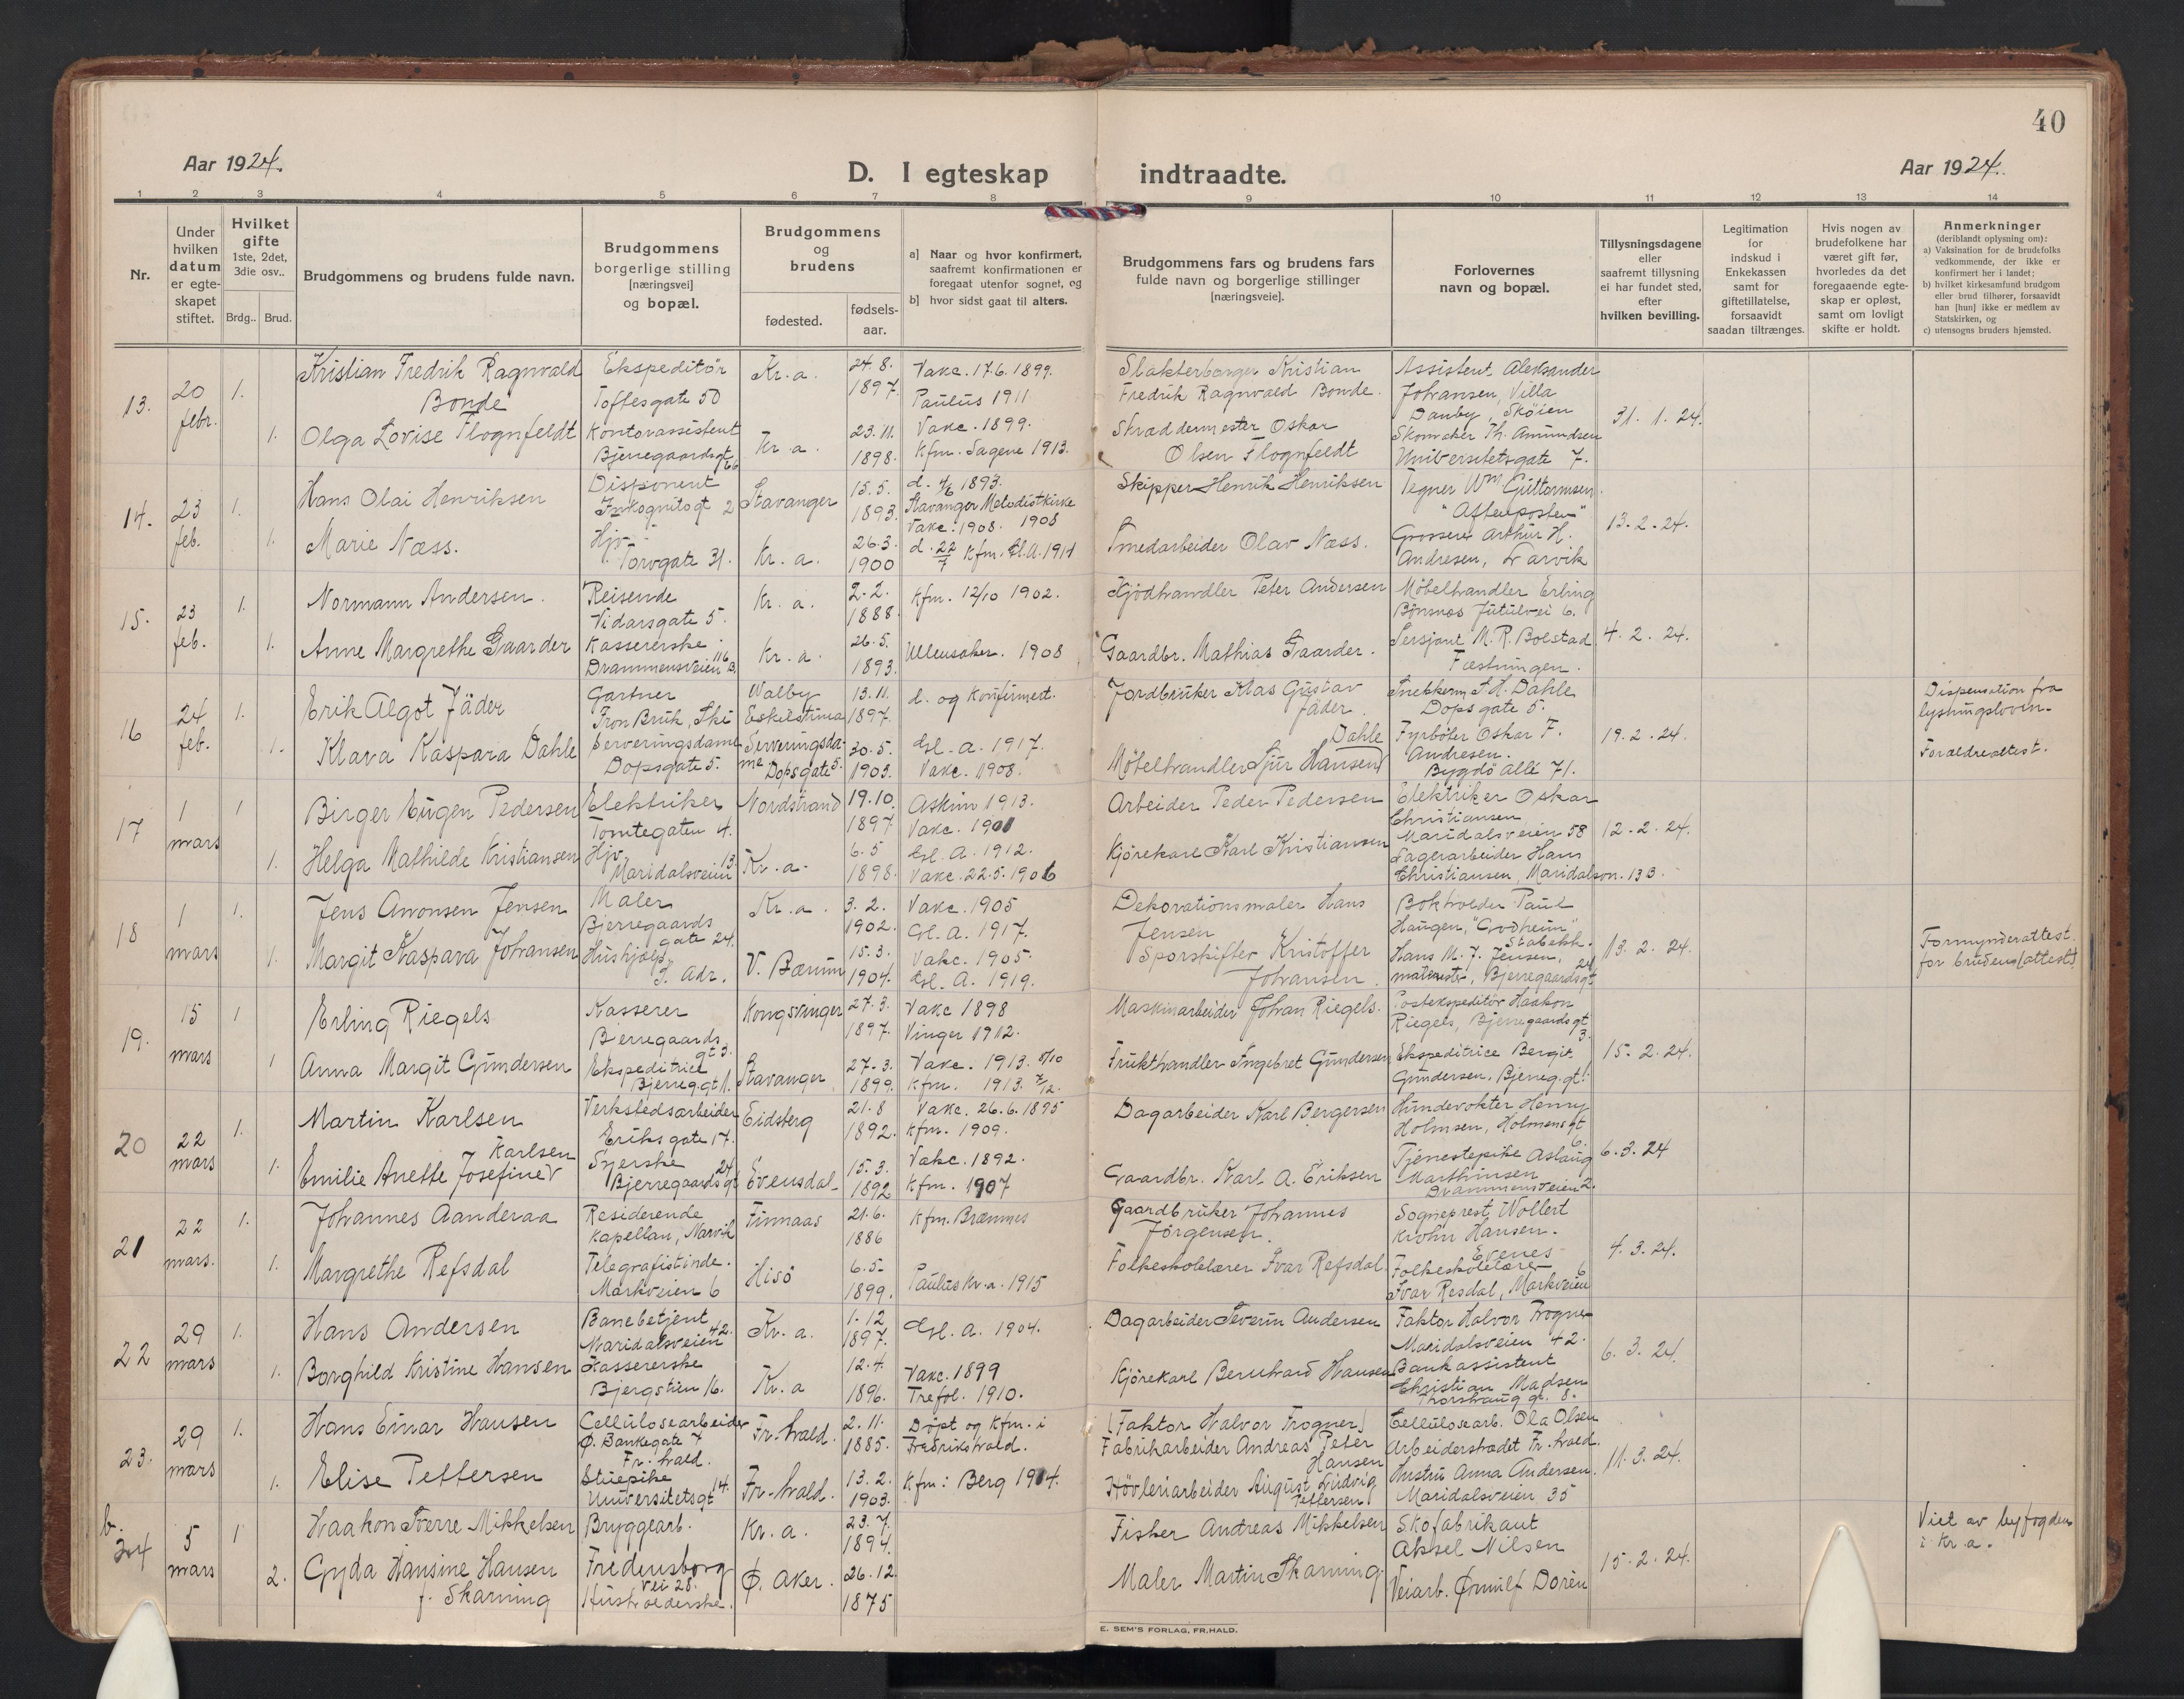 40
Aar 1924.
D. I egteskap indtraadte.
Aar 1924.
1 2 3 4 5 6 7 8 9 10 11 12 13 14
Nr.
Under hvilken datum er egteskapet stiftet.
Hvilket gifte 1ste, 2det, 3die osv..
Brdg.. Brud.
Brudgommens og brudens fulde navn.
Brudgommens borgerlige stilling [næringsvei] og bopæl.
Brudgommens og brudens
fødested.
fødsels-aar.
a] Naar og hvor konfirmert, saafremt konfirmationen er foregaat utenfor sognet, og
b] hvor sidst gaat til alters.
Brudgommens fars og brudens fars fulde navn og borgerlige stillinger [næringsveie].
Forlovernes navn og bopæl.
Tillysningsdagene eller saafremt tillysning ei har fundet sted, efter hvilken bevilling.
Legitimation for indskud i Enkekassen samt for giftetillatelse, forsaavidt saadan tiltrænges.
Hvis nogen av brudefolkene har været gift før, hvorledes da det foregaaende egteskap er opløst, samt om lovligt skifte er holdt.
Anmerkninger
(deriblandt oplysning om):
a) Vaksination for de brudefolks vedkommende, der ikke er konfirmert her i landet;
b) hvilket kirkesamfund brudgom eller brud tilhører, forsaavidt han [hun] ikke er medlem av Statskirken, og
c) utensogns bruders hjemsted.
13. 20 febr. 1. Kristian Fredrik Ragnvald Bonde
Ekspeditör Toftesgate 50
Kr.a. 24.8. 1897.
Vakc. 17.6.1899. Paulus 1911
Slakterborger Kristian Fredrik Ragnvald Bonde.
Assistent Aleksander Johansen, Villa Danby, Sköien
31. 1. 24.
1. Olga Lovise Flognfeldt
Kontorassistent Bjerregaardsgt 66
Kr.a. 23.11. 1898.
Vakc. 1899. Kfm. Sagene 1913.
Skræddermester Oskar Olsen Flognfeldt
Skomaker Th. Amundsen Universitetsgate 7.
14. 23 feb. 1. Hans Olai Henriksen
Disponent Inkognitogt 2
Stavanger 15.5. 1893.
d. 4/6 1893. Stavanger Metodistkirke Vakc. 1908. 1908
Skipper Henrik Henriksen
Tegner Wm Guttormsen. "Aftenposten"
13.2.24.
1. Marie Næss.
Hjv. Torvgate 31.
Kr.a. 26.3. 1900
d. 22/7 Kfm. Gl.A. 1914
Smedarbeider Olav Næss.
Grosserer Arthur H. Andresen, Larvik
15. 23 feb. 1. Normann Andersen.
Reisende Vidarsgate 5.
Kr.a. 2.2. 1888.
Kfm. 12/10 1902.
Kjödhandler Peter Andersen
Möbelhandler Erling Bönsnæs Jutulvei 6.
4. 2. 24.
1. Anne Margrethe Gaarder
Kassererske Drammensveien 116 B.
Kr.a. 26.5. 1893.
Ullensaker. 1908
Gaardbr. Mathias Gaarder.
Sersjant M. R. Bolstad Fæstningen.
16 24 feb. 1. Erik Algot Jäder
Gartner Fron Bruk, Ski
Walby Eskilstuna 13.11. 1897.
d. og konfirmert.
Jordbruker Klas Gustav Jäder.
Snekkerm. S. H. Dahle Dopsgate 5.
19.2.24.
Dispensation fra lysningsloven.
1. Klara Kaspara Dahle
Serveringsdame Dopsgate 5.
Serveringsdame Dopsgate 5. 30.5. 1903.
Gl.a. 1917. Vakc. 1908.
Möbelhandler Sjur Hansen Dahle
Fyrböter Oskar F. Andresen. Bygdö allé 71.
Forældreattest.
17 1 mars 1 Birger Eugen Pedersen
Elektriker Tomtegaten 4.
Nordstrand 19.10. 1897
Askim 1913. Vakc. 1901
Arbeider Peder Pedersen
Elektriker Oskar Christiansen Maridalsveien 58
12.2.24.
1. Helga Mathilde Kristiansen
Hjv. Maridalsveien 13.
Kr.a. 6.5 1898.
Gl.A. 1912. Vakc. 22.5.1906
Kjörekarl Karl Kristiansen
Lagerarbeider Hans Christiansen, Maridalsvn. 13 B.
18 1 mars 1. Jens Aronsen Jensen
Maler Bjerregaards gate 24.
Kr.a. 3.2. 1902.
Vakc. 1905 Gl.A. 1917.
Dekorationsmaler Hans Jensen
Bokholder Paul Haugen, "Grodheim" Stabekk.
13.2.24.
1. Margit Kaspara Johansen
Hushjælp S. Adr.
V. Bærum 15.3. 1904.
Vakc. 1905. Gl.A. 1919.
Sporskifter Kristoffer Johansen.
Hans M. J. Jensen, malermester, Bjerregaardsgt 24
Formynderattest for bruden (attest).
19. 15 mars 1 Erling Riegels
Kasserer Bjerregaards gt 3.
Kongsvinger 27.3. 1897.
Vakc 1898 Vinger 1912.
Maskinarbeider Johan Riegels.
Postekspeditör Haakon Riegels, Bjerregaardsgt 3.
15.2.24.
1 Anna Margit Gundersen
Ekspeditrice Bjerreg.gt 1.
Stavanger 27.3. 1899.
Vakc. 1913. 5/10 Kfm. 1913. 7/12.
Frukthandler Ingebret Gundersen
Ekspeditrice Bergit Gundersen. Bjerreg.gt 1.
20 22 mars 1. Martin Karlsen
Verkstedsarbeider Eriksgate 17.
Eidsberg 21.8 1892.
Vakc. 26.6.1895 Kfm. 1909.
Dagarbeider Karl Bergersen
Hundevokter Henry Holmsen, Holmensgt 6.
6.3.24
1. Emilie Anette Josefine Karlsen
Syerske Bjerregaardsgt 24
Evensdal 15.3. 1892
Vakc. 1892. Kfm. 1907
Gaardbr. Karl A. Eriksen
Tjenestepike Aslaug Marthinsen Drammensveien 2.
21 22 mars. 1. Johannes Aanderaa
Residerende kapellan, Narvik
Finnaas 21.6. 1886
Kfm. Bremnes
Gaardbruker Johannes Jörgensen.
Sogneprest Wollert Krohn Hansen. Evenes
4.3.24.
1. Margrethe Refsdal
Telegrafistinde. Markveien 6
Hisö 6.5. 1899.
Paulus Kr.a. 1915
Folkeskolelærer Ivar Refsdal.
Folkeskolelærer Ivar Resdal, Markveien 6
22 29 mars 1. Hans Andersen
Banebetjent Maridalsveien 42.
Kr.a. 1.12 1897.
Gl.A. 1904.
Dagarbeider Severin Andersen
Faktor Halvor Frogner Maridalsveien 42.
6.3.24.
1. Borghild Kristine Hansen
Kassererske Bjergstien 16.
Kr.a 12.4. 1896.
Vakc. 1899 Trefol. 1910.
Kjörekarl Bernhard Hansen
Bankassistent Christian Madsen Thorshaug gt. 8.
23. 29 mars 1. Hans Einar Hansen
Cellulosearbeider Ø. Bankegate 7 Fr.hald.
Fr.hald. 2.11. 1885.
Döpt og Kfm. i Fredrikshald.
(Faktor Halvor Frogner) Fabrikarbeider Andreas Peter Hansen
Cellulosearb. Ola Olsen Arbeiderstadet Fr.hald.
11.3.24.
1. Elise Pettersen
Stuepike Universitetsgt 14.
Fr.hald. 13.2. 1903.
Kfm: Berg 1914.
Hövleriarbeider August Ludvig Pettersen
Hustru Anna Andersen. Maridalsveien 35
b. 24 5 mars 1 Haakon Sverre Mikkelsen
Bryggearb. Fredensborg vei 28.
Kr.a. 23.7. 1894.
Fisker Andreas Mikkelsen
Skofabrikant Aksel Nilsen
15.2.24.
Viet av byfogden i Kr.a.
2. Gyda Hansine Hansen f. Skarning
Husholderske.
Ø. Aker. 26.12. 1875
Maler Martin Skarning
Veiarb. Ørnulf Dorèn
E. SEM'S FORLAG, FR.HALD.